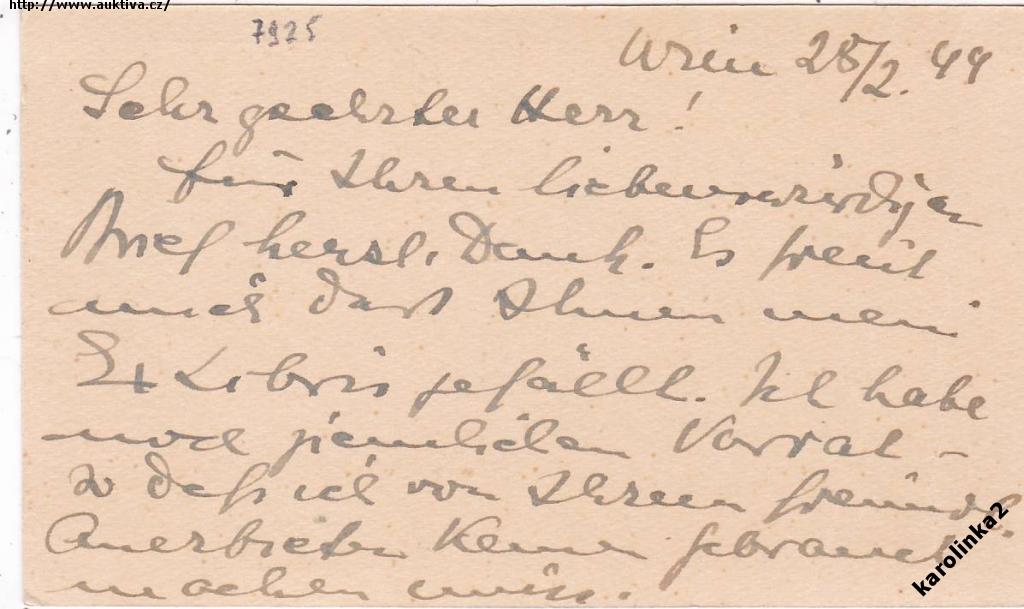 http://www.auktiva.cz/
7925
Wien 28/2. 44
Sehr geehrter Herr!
für Ihren liebenswürdigen
Brief herzl. Dank. Es freut
mich dass Ihnen mein
Ex Libris gefällt. Ich habe
noch ziemlichen Vorrat –
so dass ich von Ihrem freundl.
Anerbieten keinen Gebrauch
machen muss.
karolinka2